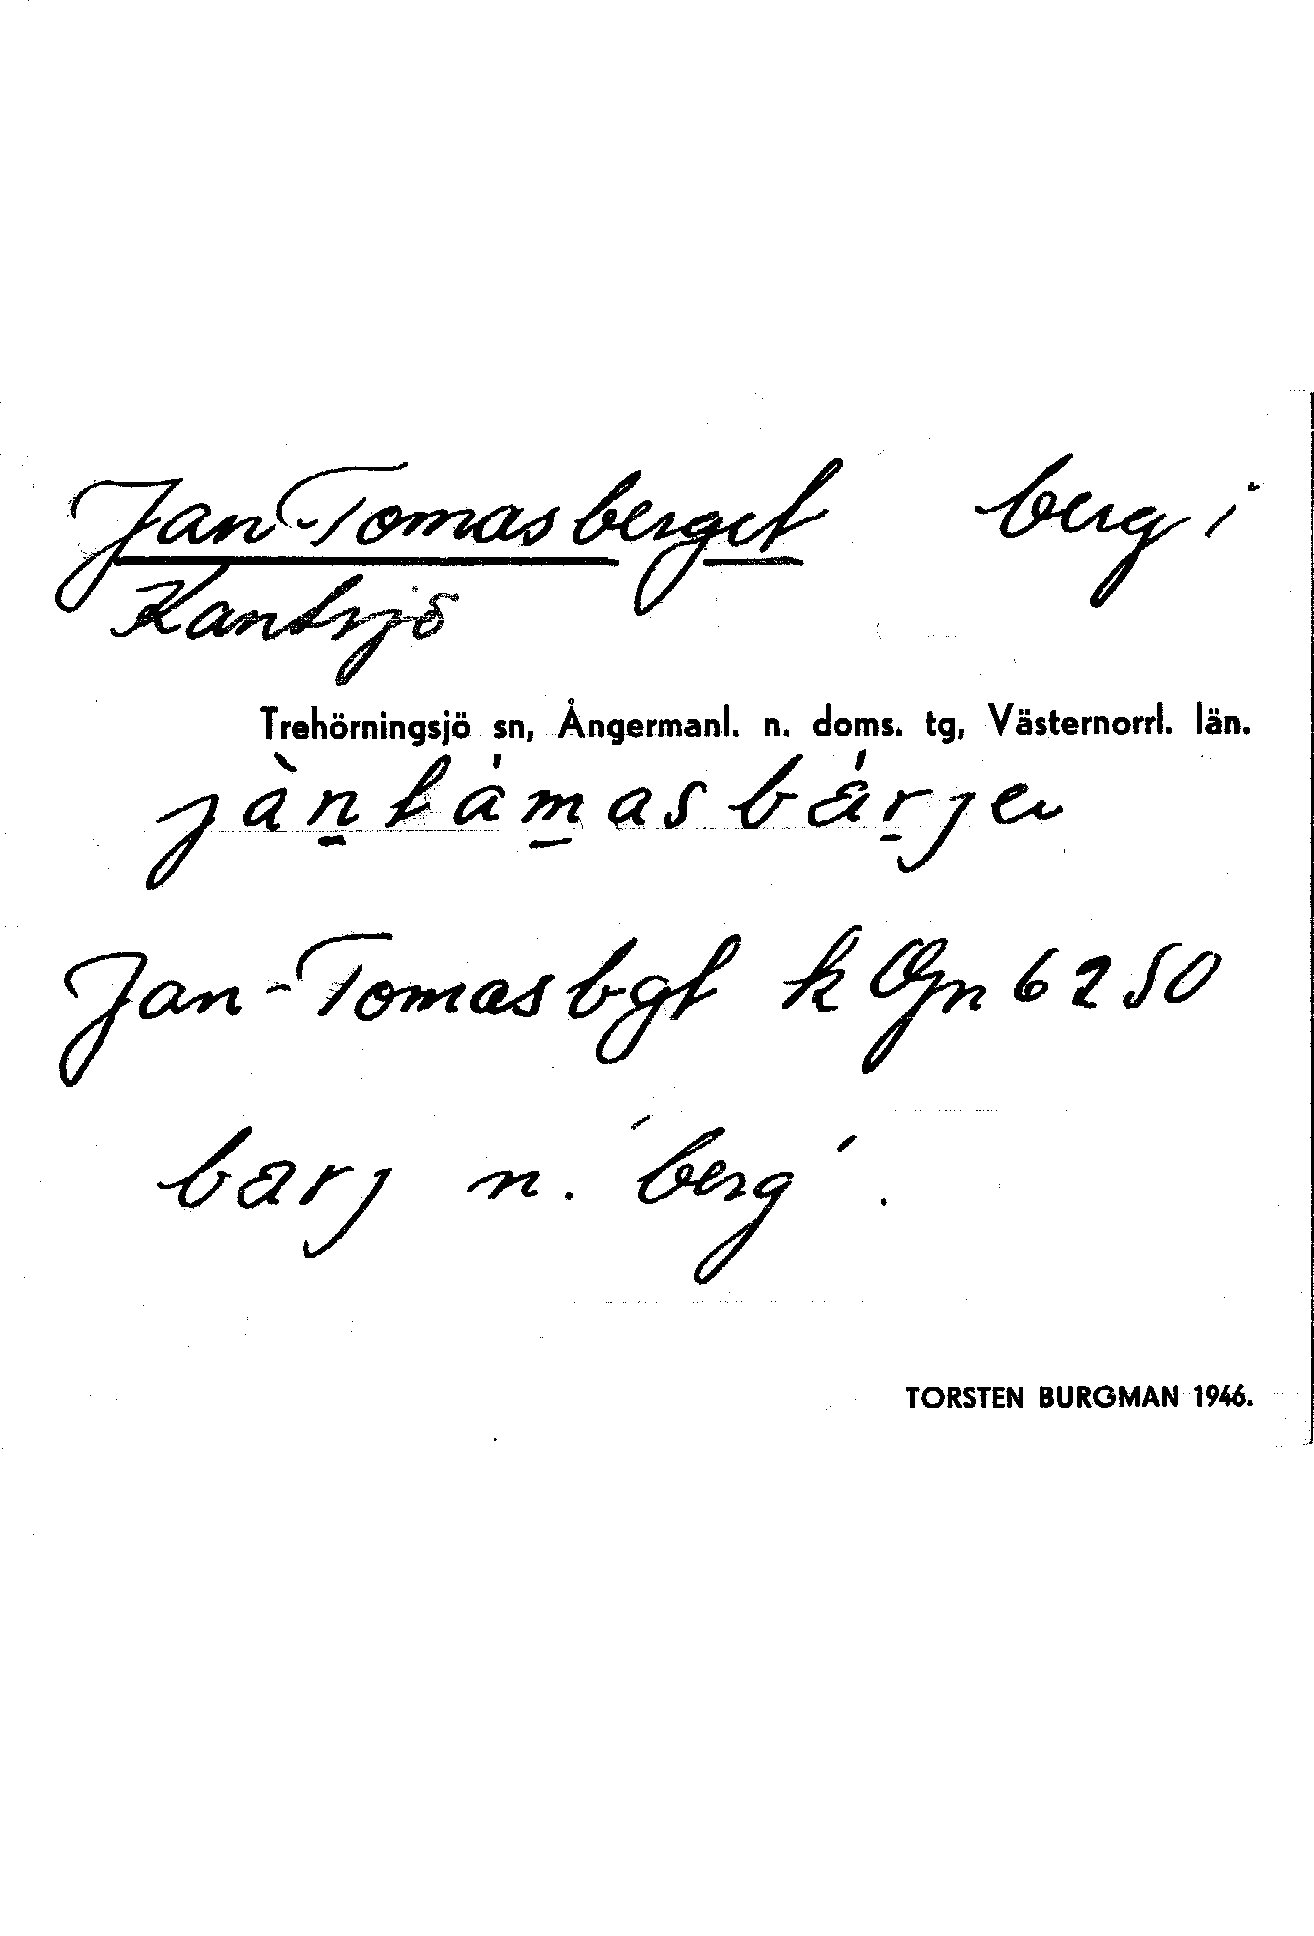 Jan-Tomasberget berg i
Kantsjö
Trehörningsjö sn, Ångermanl. n. doms. tg, Västernorrl. län.
jàn̲tám̲asbár̲je
Jan-Tomasbgt k Ogn 6250
barj n. 'berg'.
TORSTEN BURGMAN 1946.